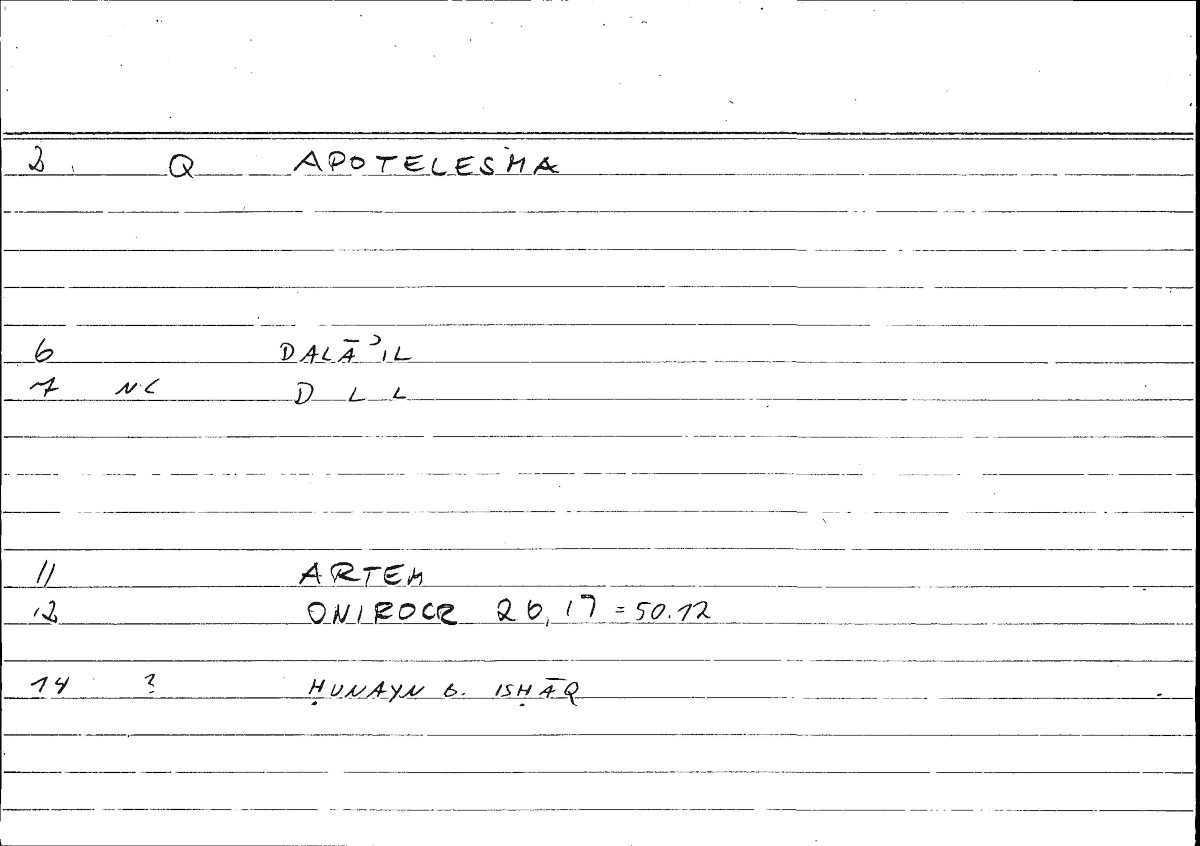 2. Q APOTELESMA
6 DALĀʾIL
7 NC D L L
11 ARTEM
12 ONIROCR 26,17 = 50.12
14 ? ḤUNAYN b. ISḤĀQ